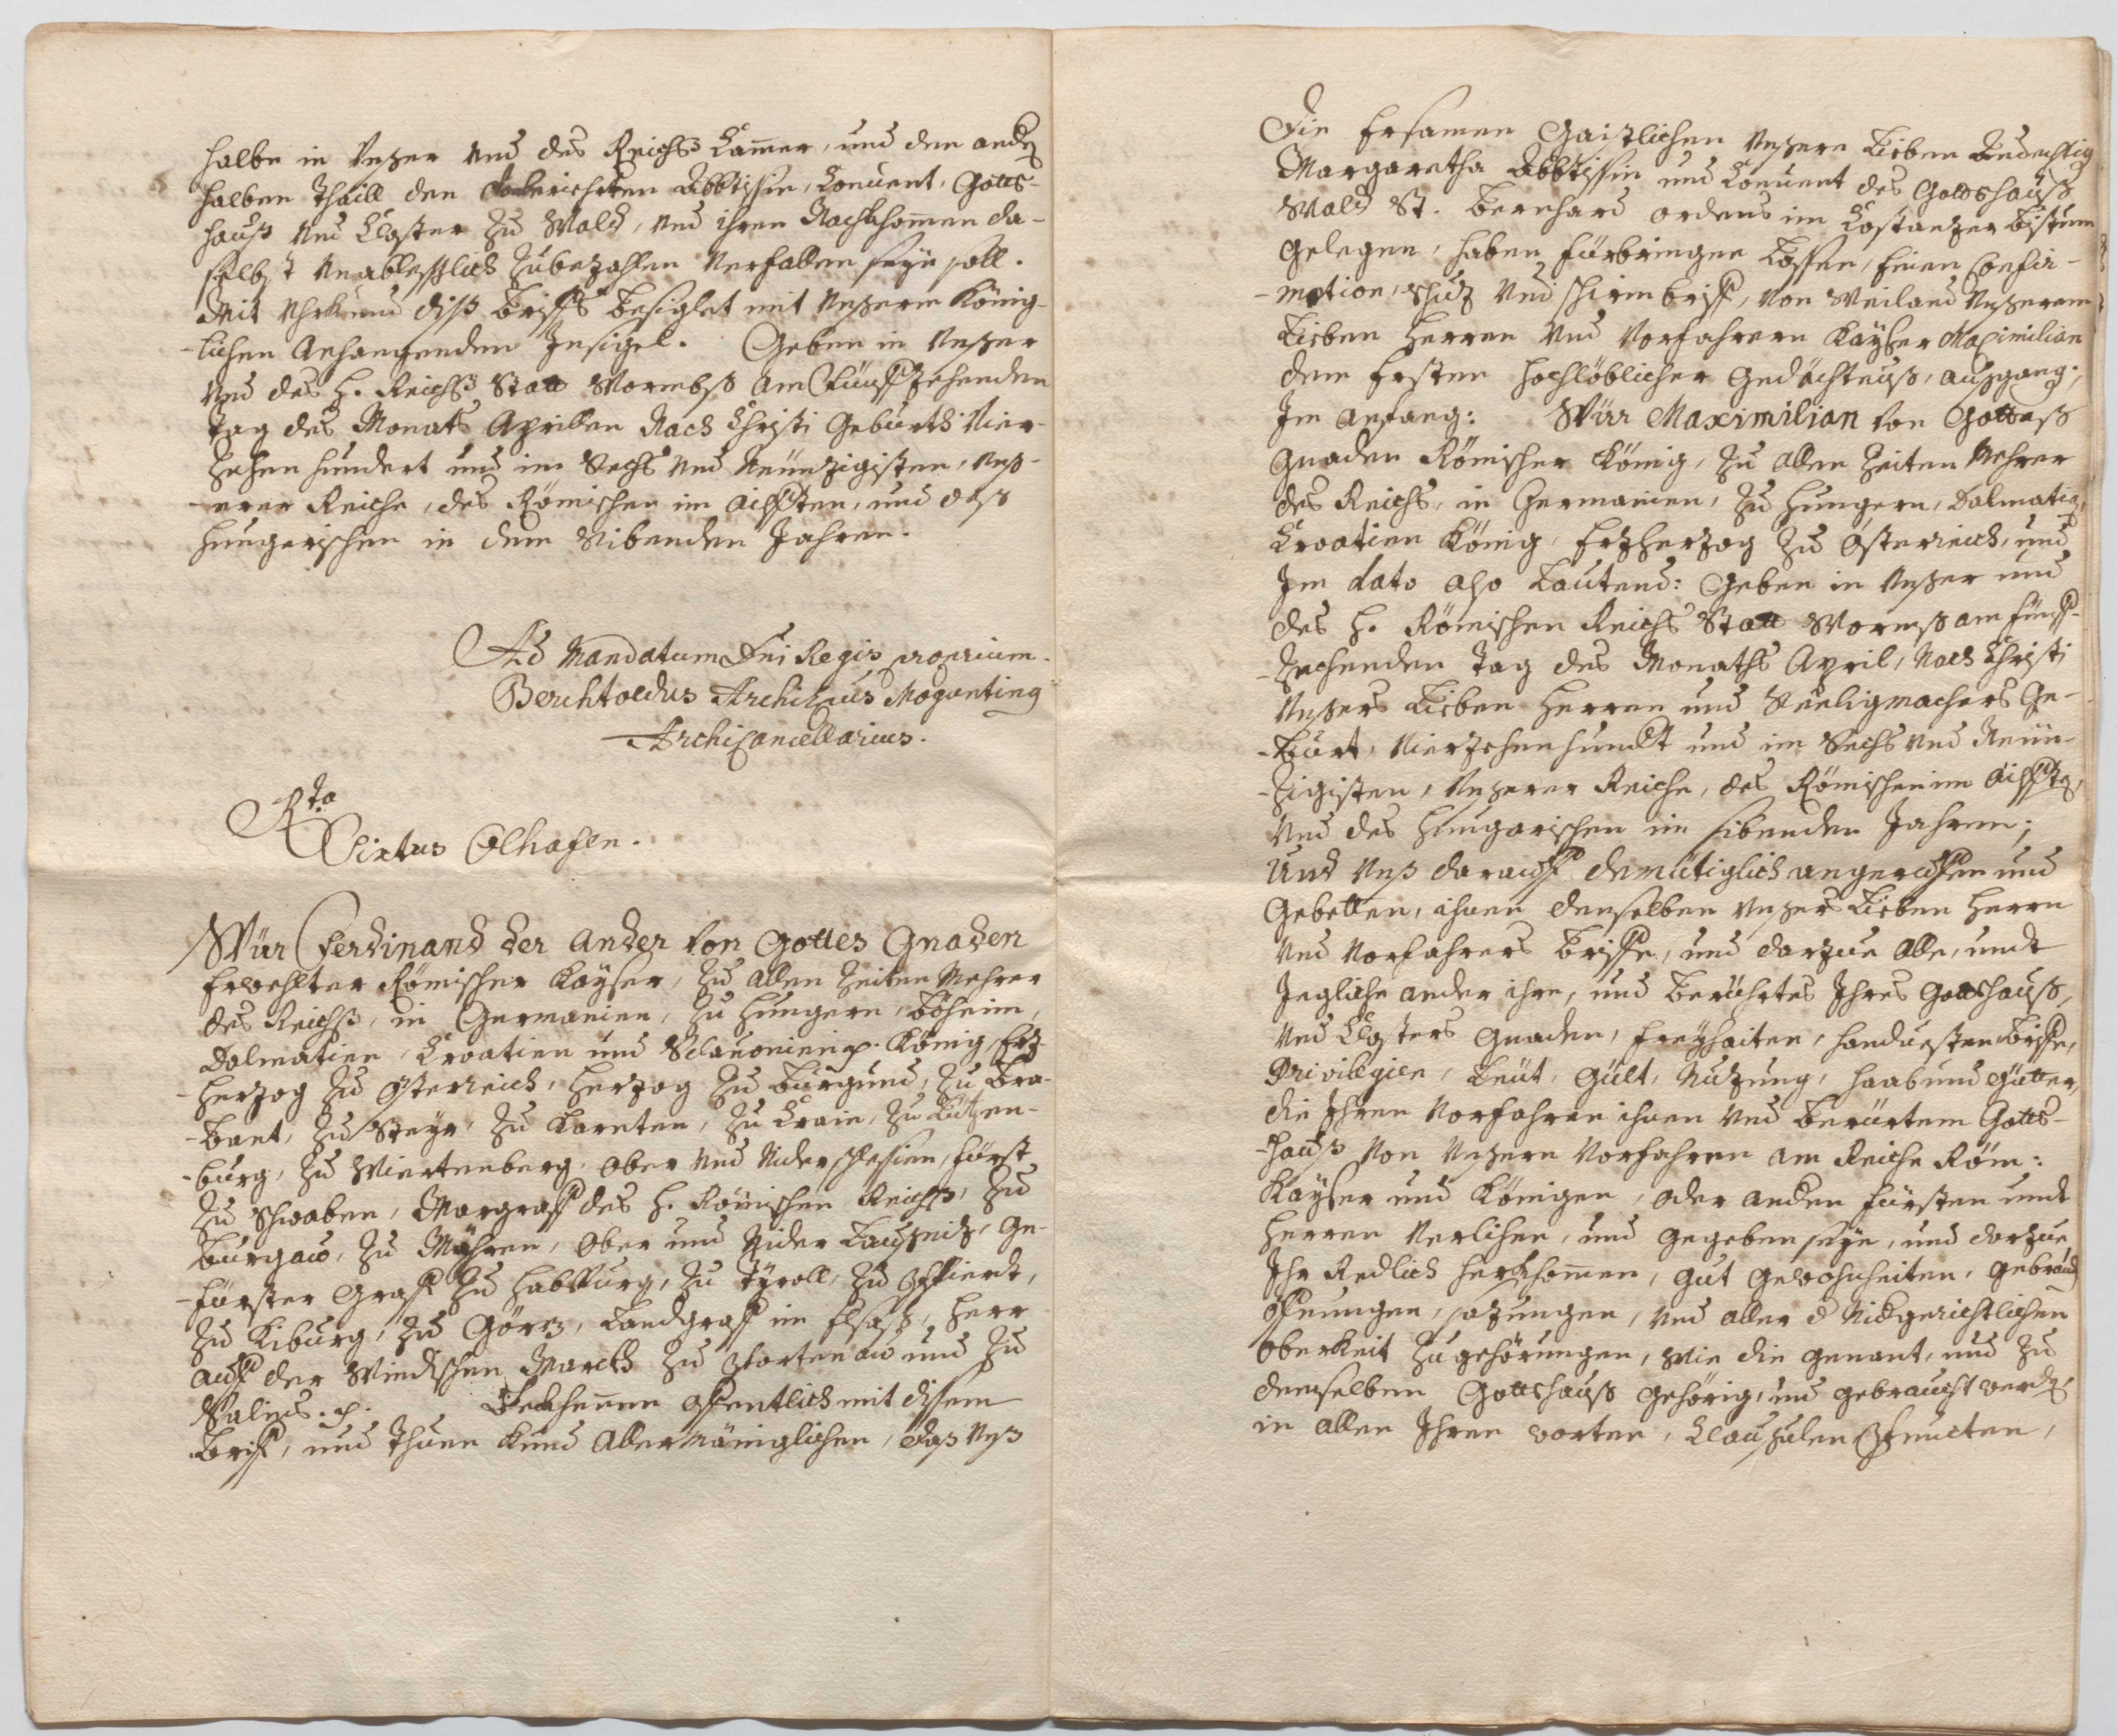 halbe in Vnßer vnd des Reichß Cammer, und den andern
halben Thaill den Abbtißin, Conuent, Gotts-
hauß vnd Closter zu Wald, vnd ihren Nachkhommen da-
selbst vnableßlich zubezahlen verfallen seyn soll.
Mit Vhrkund diß brieffs besiglet mit Vnßerm König-
-lichen anhangenden Insigel. Geben in Vnßer
vnd des H. Reichß Statt Wormbß am Fünffzehenden
Tag des Monats Aprillen Nach Christi Geburth Vier-
zehen hundert und im Sechs vnd Neünzigisten, Vnß-
-erer Reiche, des Römischen im ailfften, und deß
Hungerischen in dem Sibenden Jahren.
Ad Mandatum Dni Regis proprium.
Berchtoldus Archiepus Moguntinq
Archicancellarius.
Rta
Sixtus Olhafen.
Wür Ferdinand der Ander von Gottes Gnaden
Erwehlter Römischer Kayser, zu allen Zeiten Mehrer
des Reichß, in Germanien, zu Hungern, Böheim,
Dalmatien, Croatien und Sclauonien p. König, Ertz-
-herzog zu Österreich, Herzog zu Burgund, zu Bra-
-bant, zu Steyr, zu Karnten, zu Crain, zu Lützen-
-burg, zu Wiertenberg, Ober vnd Nider Schlesien, Fürst
zu Schwaben, Margraff des H. Römischen Reichß, zu
Burgaw, zu Mähren, Ober und Nider Laußnitz, Ge-
-fürster Graff zu Habspurg, zu Tyroll, zu Pfierdt,
zu Kiburg, zu Görz, Landgraff im Elsaß, Herr
auff der Windischen March zu Portenaw und zu
Salins. p. Bekhennen offentlich mit disem
brieff, und thuen kund allermäniglichen, daß Vnß
Die Ersamen Gaistlichen Vnßere Lieben Andechtig
Margaretha Abbtißin und Conuent des Gottshauß
Wald St. Bernhard ordens im Costanzer Bistum
gelegen, haben fürbringen Lassen, Einen Confir-
-mation, Schuz vnd Schirmbrieff, von Weiland Vnßerem
Lieben Herren vnd Vorfahren Kayser Maximilian
dem Ersten hochlöblicher Gedächtnuß, außgang.,
Im Anfang: Wür Maximilian von Gottes
Gnaden Römischer König, zu allen Zeiten Mehrer
des Reichs, in Germanien, zu Hungern, Dalmatien,
Croatien König, Erzherzog zu Österreich, und
Im dato also Lautend: Geben in Vnßer und
des H. Römischen Reichs Statt Wormß am fünff-
-zechenden Tag des Monaths April, Nach Christi
Vnßers Lieben Herren und Seeligmachers Ge-
-burt, Vierzehenhundert und im Sechs vnd Neün-
-zigisten, Vnßerer Reiche, des Römischen im ailfften,
vnd des Hungarischen im sibenden Jahren;
Und Vnß darauff demütiglich angeruffen und
Gebetten, ihnen denselben Vnßers Lieben Herrn
vnd Vorfahrers brieffe, und darzue alle, undt
Jegliche ander ihre, und berührtes Ihres Gottshauß,
vnd Closters Gnaden, Freyhaiten, Handuesten brieffe,
Privilegien, Leüt, Gült, Nutzung, Haab und Gütter,
die Ihren Vorfahren ihnen vnd berürtem Gotts-
-hauß von Vnßern Vorfahren am Reiche Röm:
Kayser und Königen, oder andern Fürsten undt
Herren verlihen, und gegeben seyn, und darzue
Ihr Redlich Herkhommen, gut Gewohnheiten, Gebräuch
öffnungen, sazungen, vnd aller d Nidgerichtlichen
Oberkeit zugehörungen, wie die genant, und zu
demselben Gottshauß gehörig, und gebraucht werden
in allen Ihren worten, Clausulen Puncten,